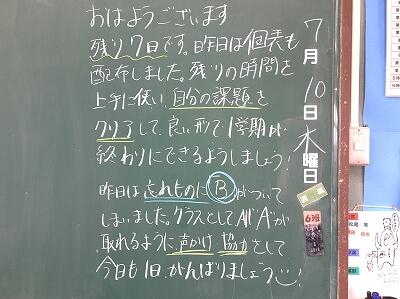 おはようございます
残り7日です。昨日は個表も
配布しました。残りの時間を
上手に使い、自分の課題を
クリアして、良い形で1学期が
終わりにできるようしましょう!
昨日は忘れものにⒷがついて
しまいました。クラスとしてAll"A"が
取れるように声かけ協力をして
今日も1日がんばりましょう
7月10日木曜日
6班